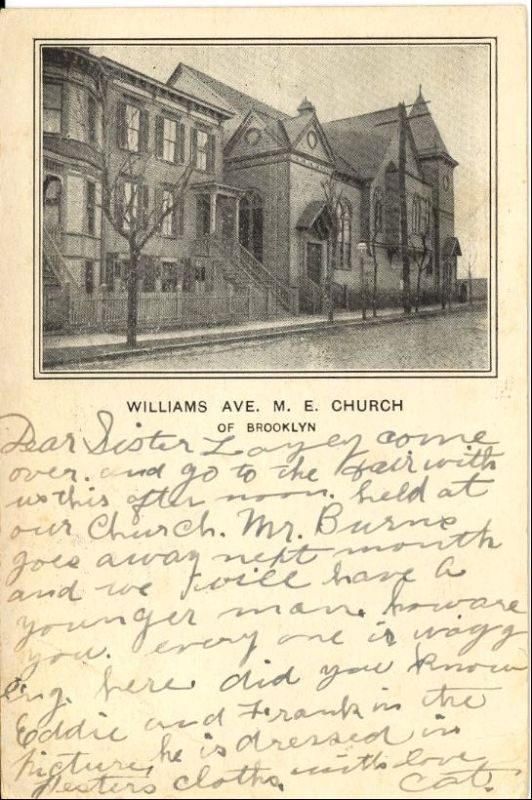 WILLIAMS AVE. M. E. CHURCH
OF BROOKLYN
Dear Sister come
over. and go to the Fair with
us this after noon. held at
our Church. Mr. Burns
goes away next month
and we will have a
younger man. how are
you. every one is wagg
ing. here did you know
Eddie and Frank in the
picture, he is dressed in
Lesters cloths. with love
Cat.